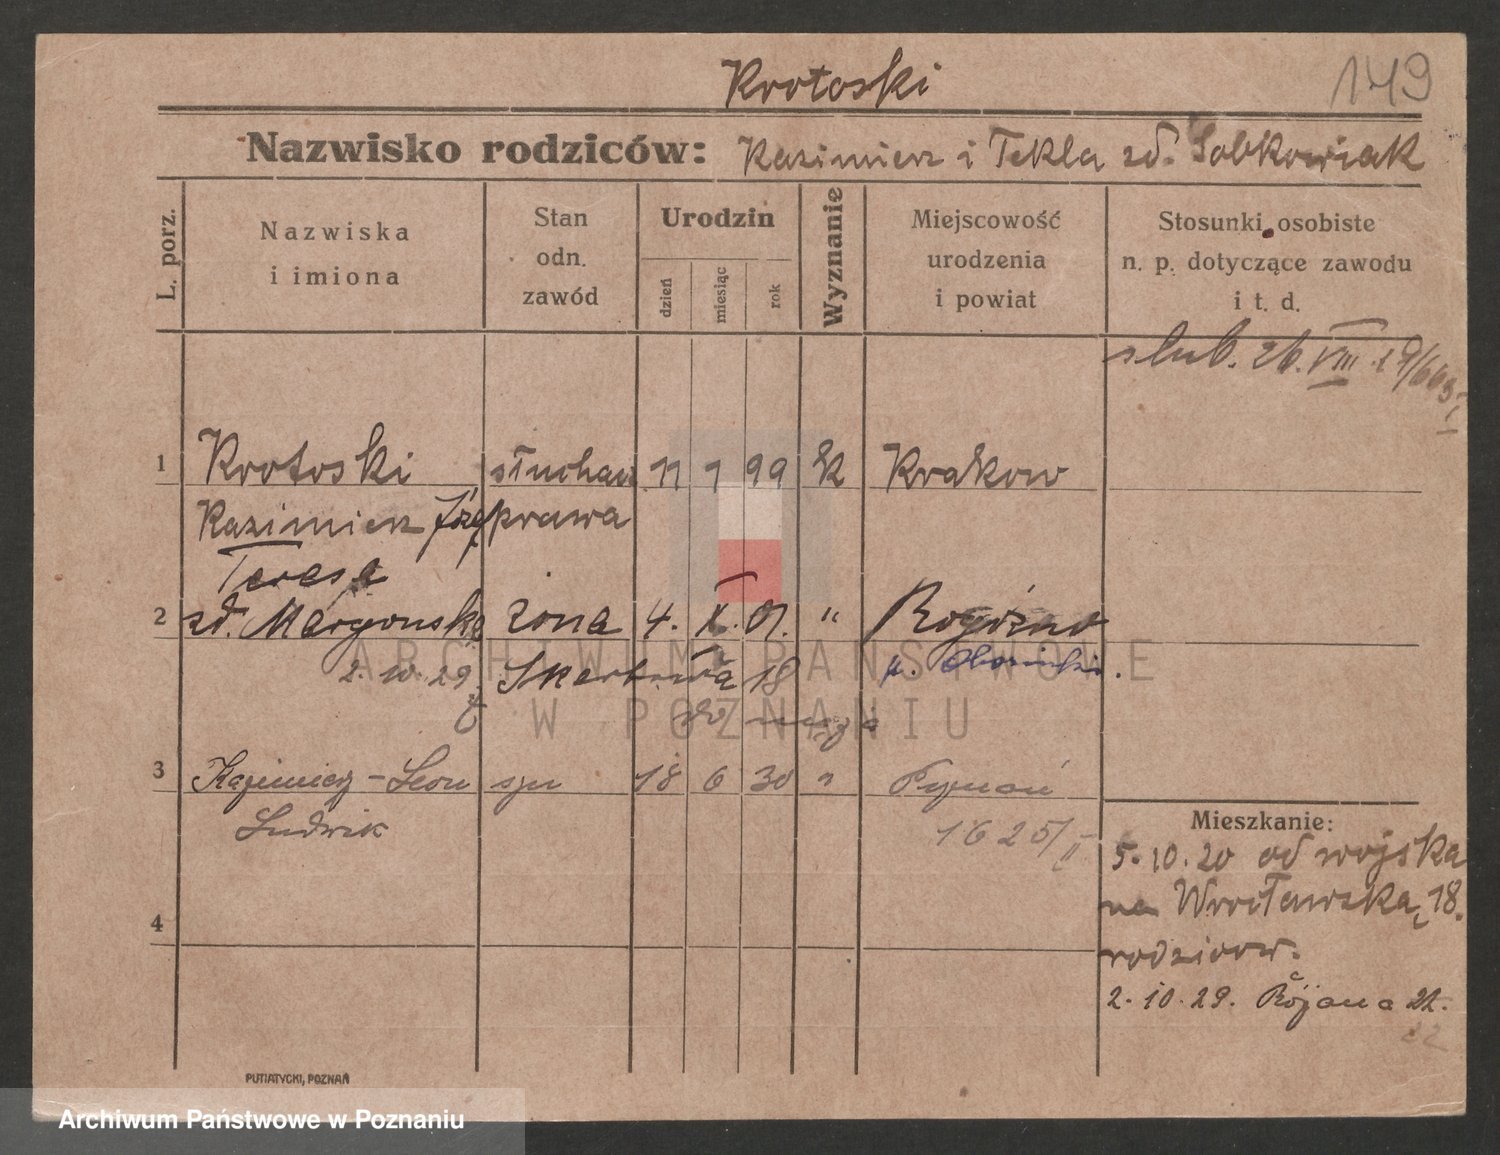 Krotoski
149
Nazwisko rodziców: Kazimierz i Tekla zd. Sobkowiak
L. porz.
Nazwiska i imiona
Stan odn. zawód
Urodzin
dzień miesiąc rok
Wyznanie
Miejscowość urodzenia i powiat
Stosunki osobiste n. p. dotyczące zawodu i t. d.
slub. 26. VIII. 29/663
1 Krotoski słuchacz 11 1 99 k Krakow
Kazimierz Józef prawa
Teresa
2 zd. Margonska zona 4. X. 01. " Rogóźno
2. 10. 29 18 p. Obornicki.
do męża
3 Kazimierz-Leon syn 18 6 30 " Poznań
Ludwik 1625/II
4
Mieszkanie:
5.10.20 od wojska
na Wrocławska 18.
rodzicow.
2.10.29. 22.
22
PUTIATYCKI, POZNAŃ
ARCHIWUM PAŃSTWOWE
W POZNANIU
Archiwum Państwowe w Poznaniu